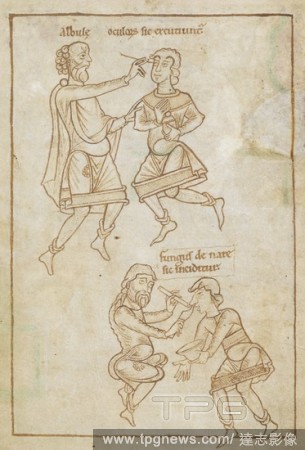 albule oculoꝝ sic excutiunt᷑.
fungus de nare
sic inciditur.
TPG
www.tpgnews.com/ 達志影像